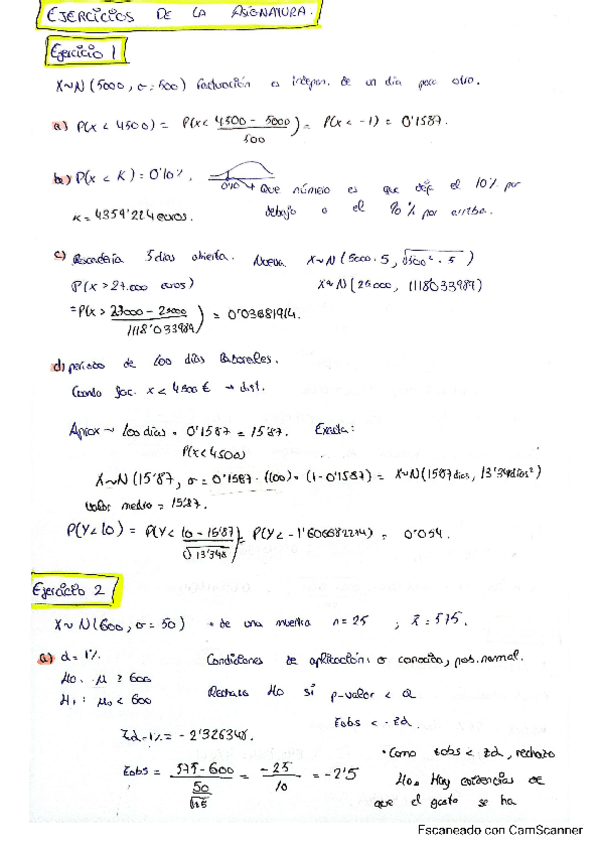 EJERCICIOS DE LA ASIGNATURA.
Ejercicio 1
X~N (5000, σ=500) facturación es indepen. de un día para otro.
a) P(X < 4500) = P(X < 4500 - 5000 / 500) = P(X < -1) = 0'1587.
b) P(X < K) = 0'10%. 0'10 → Que número es que deja el 10% por
K = 4359'224 euros. debajo o el 90% por arriba.
c) 5 días abierta. Nueva X~N (5000·5, √500²·5)
P(X > 27.000 euros) X~N (25000, 1118'033989)
= P(X > 27000 - 25000 / 1118'033989) = 0'03681914.
d) periodo de 100 días laborales.
Cuando fac. X < 4500€ → dist.
Aprox ~ 100 días · 0'1587 = 15'87. Exacta:
P(X<4500)
X~N (15'87, σ = 0'1587 · (100) · (1-0'1587) = X~N (15'87 días, 13'348 días²)
Valor medio = 15'87.
P(Y<10) = P(Y < 10 - 15'87 / √13'348) = P(Y < -1'606682214) = 0'054.
Ejercicio 2
X~N (600, σ = 50) → de una muestra n = 25 ; x̄ = 575.
a) α = 1% Condiciones de aplicación: σ conocida, pob. normal.
H0: μ ≥ 600
H1: μ0 < 600 Rechazo H0 si p-valor < α
Zobs < -Zα
Zα-1% = -2'326348.
· Como tobs < Zα, rechazo
Zobs = 575-600 / 50 / √25 = -25 / 10 = -2'5 H0. Hay evidencias de
que el gasto se ha
Escaneado con CamScanner